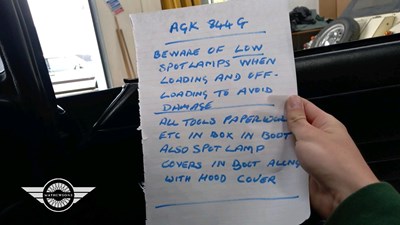 AGK 844G
BEWARE OF LOW
SPOTLAMPS WHEN
LOADING AND OFF-
LOADING TO AVOID
DAMAGE
ALL TOOLS PAPERWORK
ETC IN BOX IN BOOT
ALSO SPOT LAMP
COVERS IN BOOT ALONG
WITH HOOD COVER